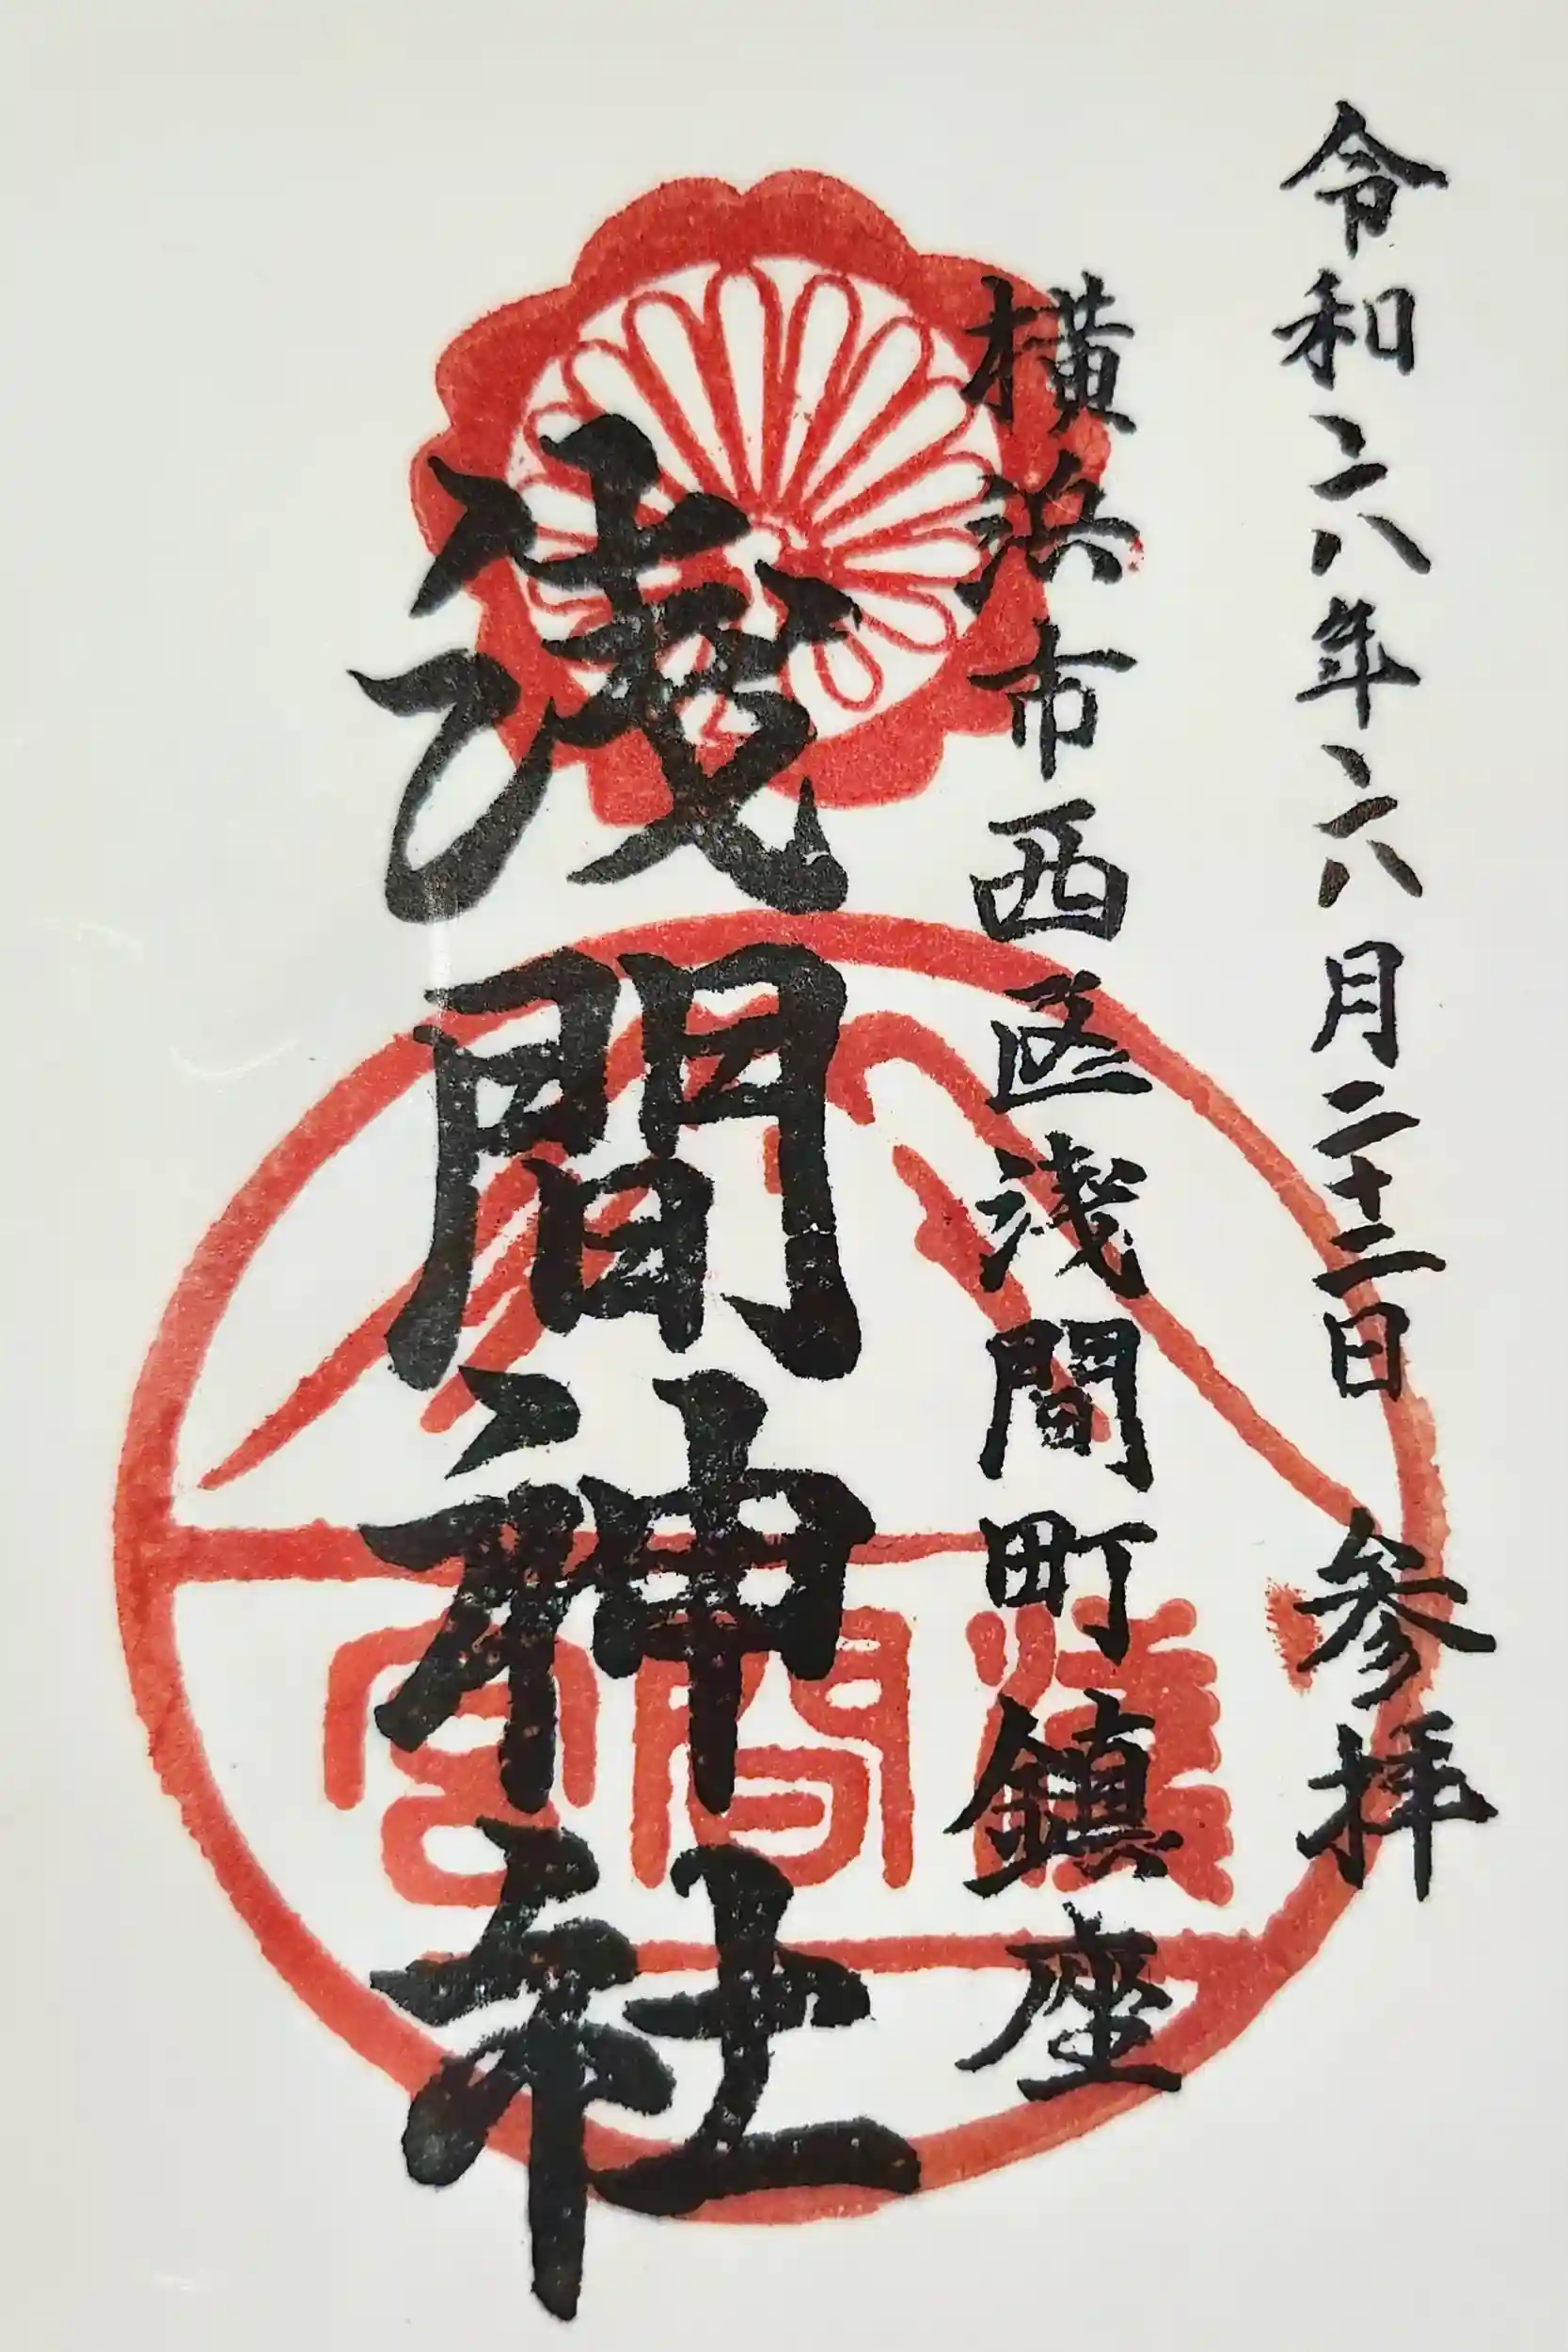 令和六年六月二十二日 参拝
横浜市西区淺間町鎮座
淺間神社
淺間宮